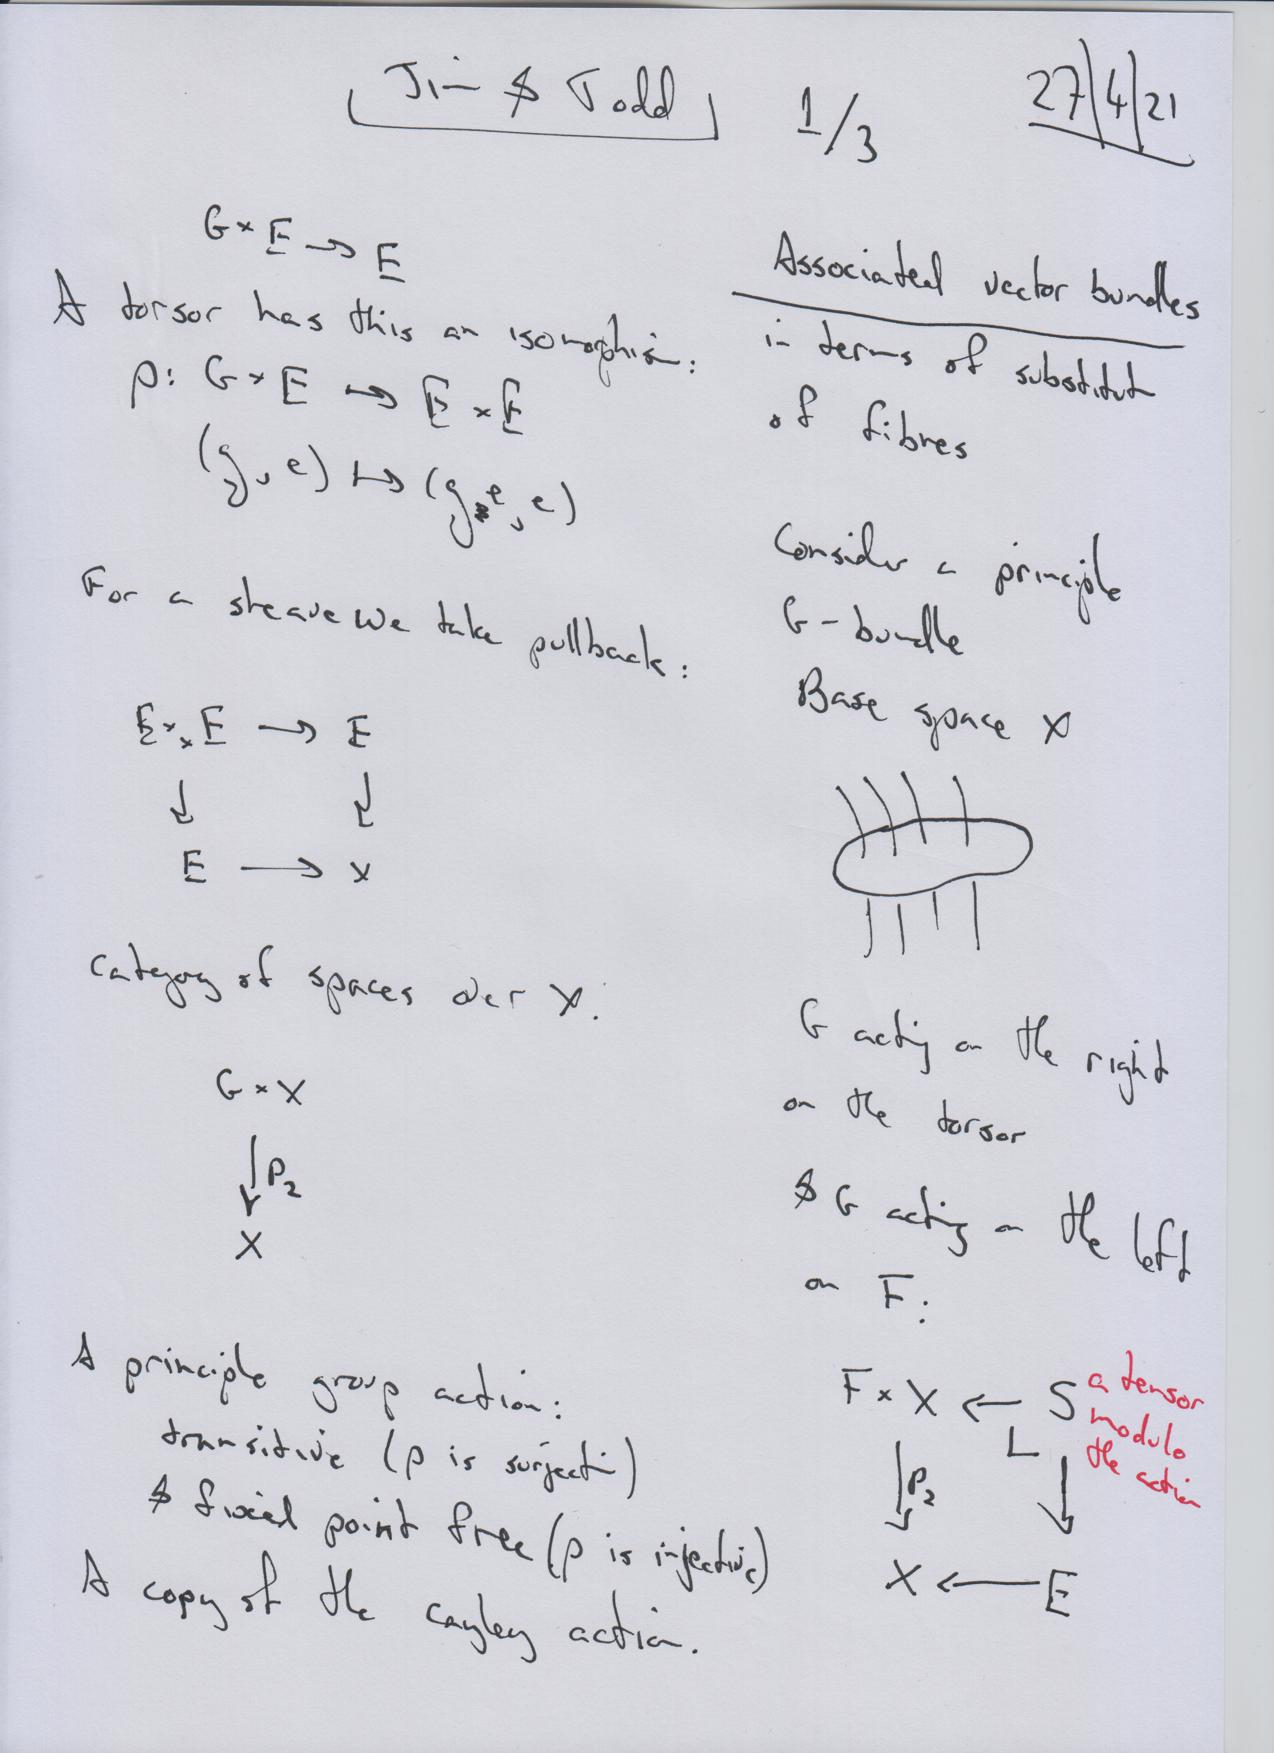 Jim & Todd
1/3
27/4/21
G × E → E
A torsor has this an isomorphism:
ρ: G × E → E × E
(g, e) ↦ (g e, e)
For a sheave we take pullback:
E ×ₓ E → E
↓ ↓
E → X
Category of spaces over X.
G × X
↓ P₂
X
A principle group action:
transitive (ρ is surjecti)
& fixed point free (ρ is injective)
A copy of the cayley action.
Associated vector bundles
in terms of substitut
of fibres
Consider a principle
G-bundle
Base space X
G acting on the right
on the torsor
& G acting on the left
on F:
F × X ← S
a tensor
modulo
the action
↓ P₂ ↓
X ← E